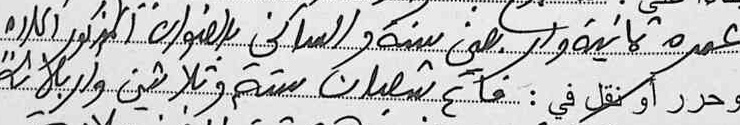 عمره ثمانية واربعين سنة والساكن بالعنوان المذكور اعلاه
وحرر أو نقل في : فاتح شعبان ستة وثلاثين واربعمائة